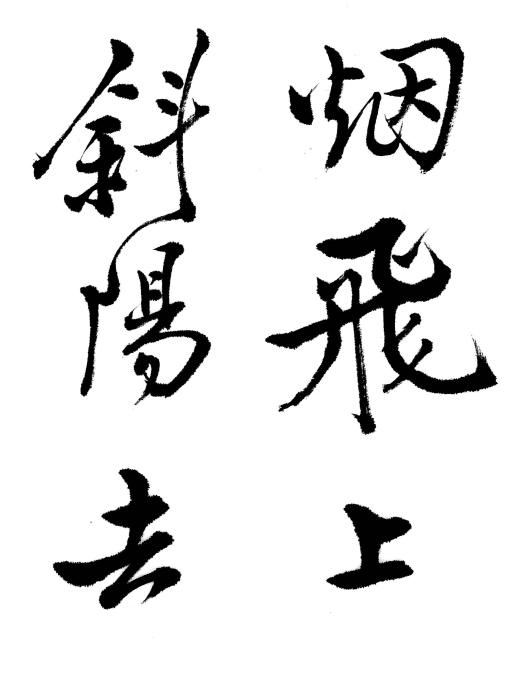 烟飛上
斜陽去